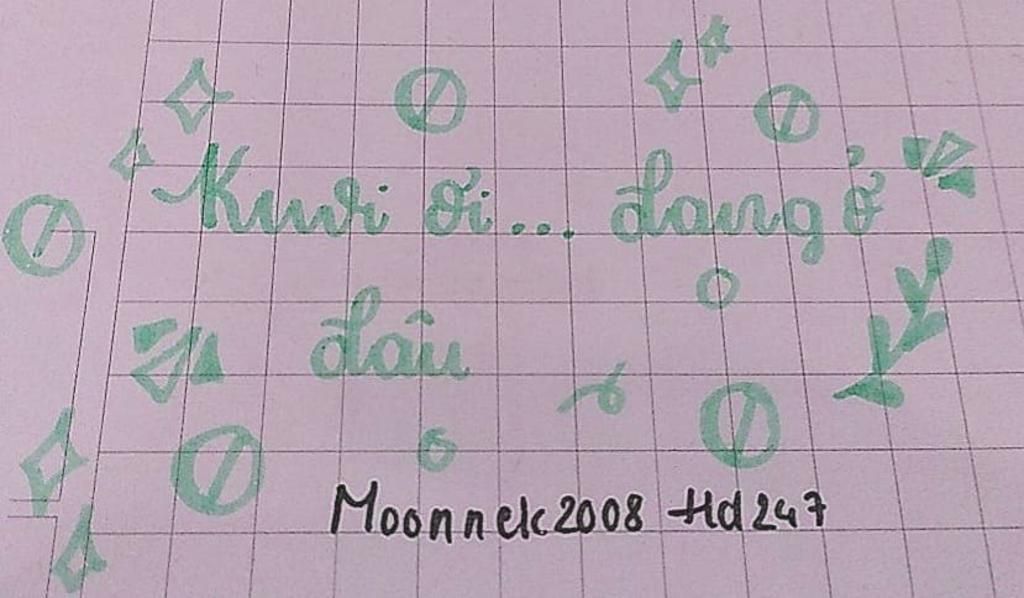 Kuwi ơi... đang ở
đâu
Moonnek2008 Hd247